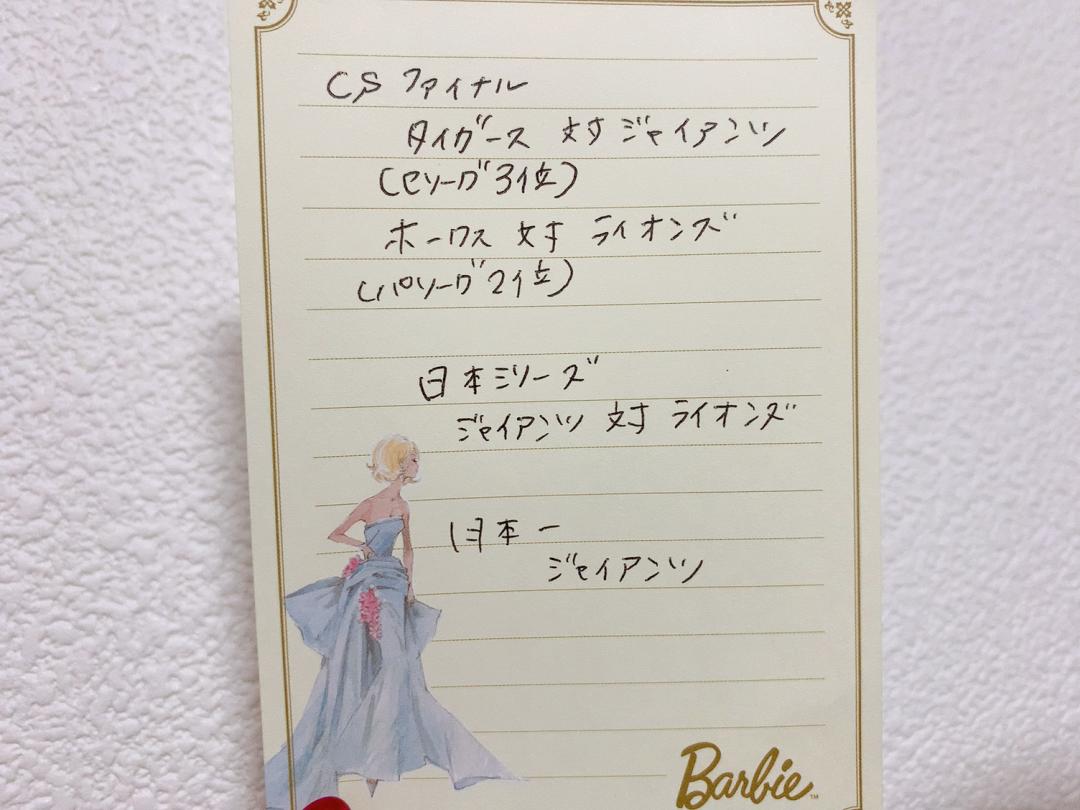 CS ファイナル
タイガース 対 ジャイアンツ
(セリーグ3位)
ホークス 対 ライオンズ
(パリーグ2位)
日本シリーズ
ジャイアンツ 対 ライオンズ
日本一
ジャイアンツ
Barbie™